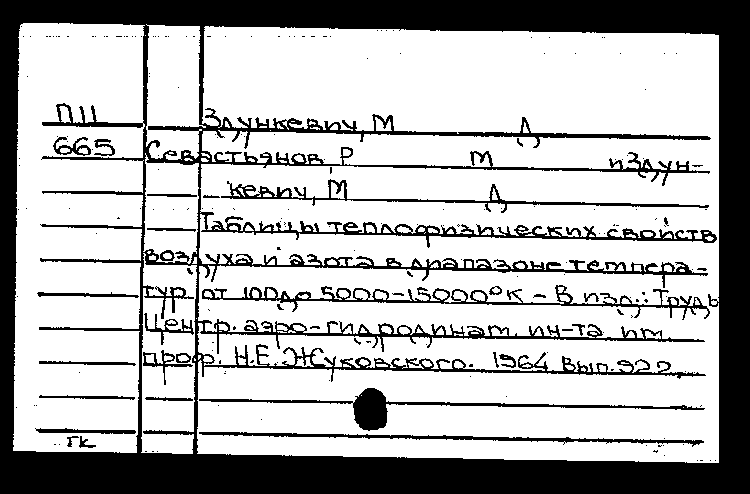 П11 Здункевич, М Д
665 Севастьянов, Р М и Здун-
кевич, М Д
Таблицы теплофизических свойств
воздуха и азота в диапазоне темпера-
тур от 100 до 5000-15000°К - В изд.: Труды
Центр. аэро-гидродинам. ин-та им.
проф. Н.Е. Жуковского. 1964 Вып. 922.
ГК